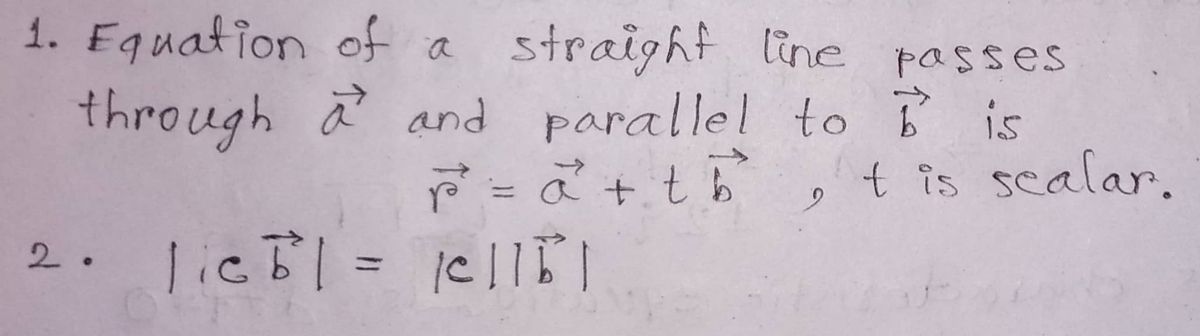 1. Equation of a straight line passes
through a⃗ and parallel to b⃗ is
r⃗ = a⃗ + t b⃗ , t is scalar.
2. |c b⃗| = |c||b⃗|